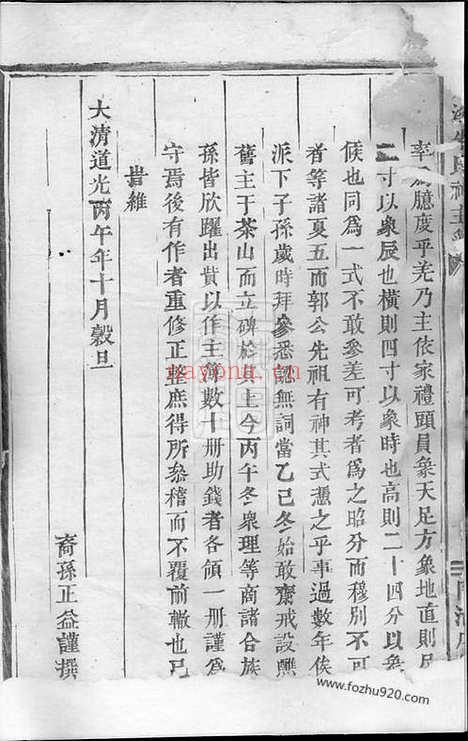 率爲臆度乎羌乃主依家禮頭員象天足方象地直則尺
二寸以象辰也橫則四寸以象時也高則二十四分以象
候也同爲一式不敢參差可考者爲之昭分而穆別不可
者等諸夏五而郭公先祖有神其式憑之乎事過數年俟
派下子孫歲時拜參悉認無詞當乙已冬始敢齋戒設
舊主于茶山而立碑於其上今丙午冬衆理等商諸合族
孫皆欣躍出貲以作主簿數十册助錢者各領一册謹爲
守焉後有作者重修正整庶得所叅稽而不覆前轍也已
旹維
大清道光丙午年十月穀旦
裔孫正益謹撰
nayona.cn
www.fozhu920.com